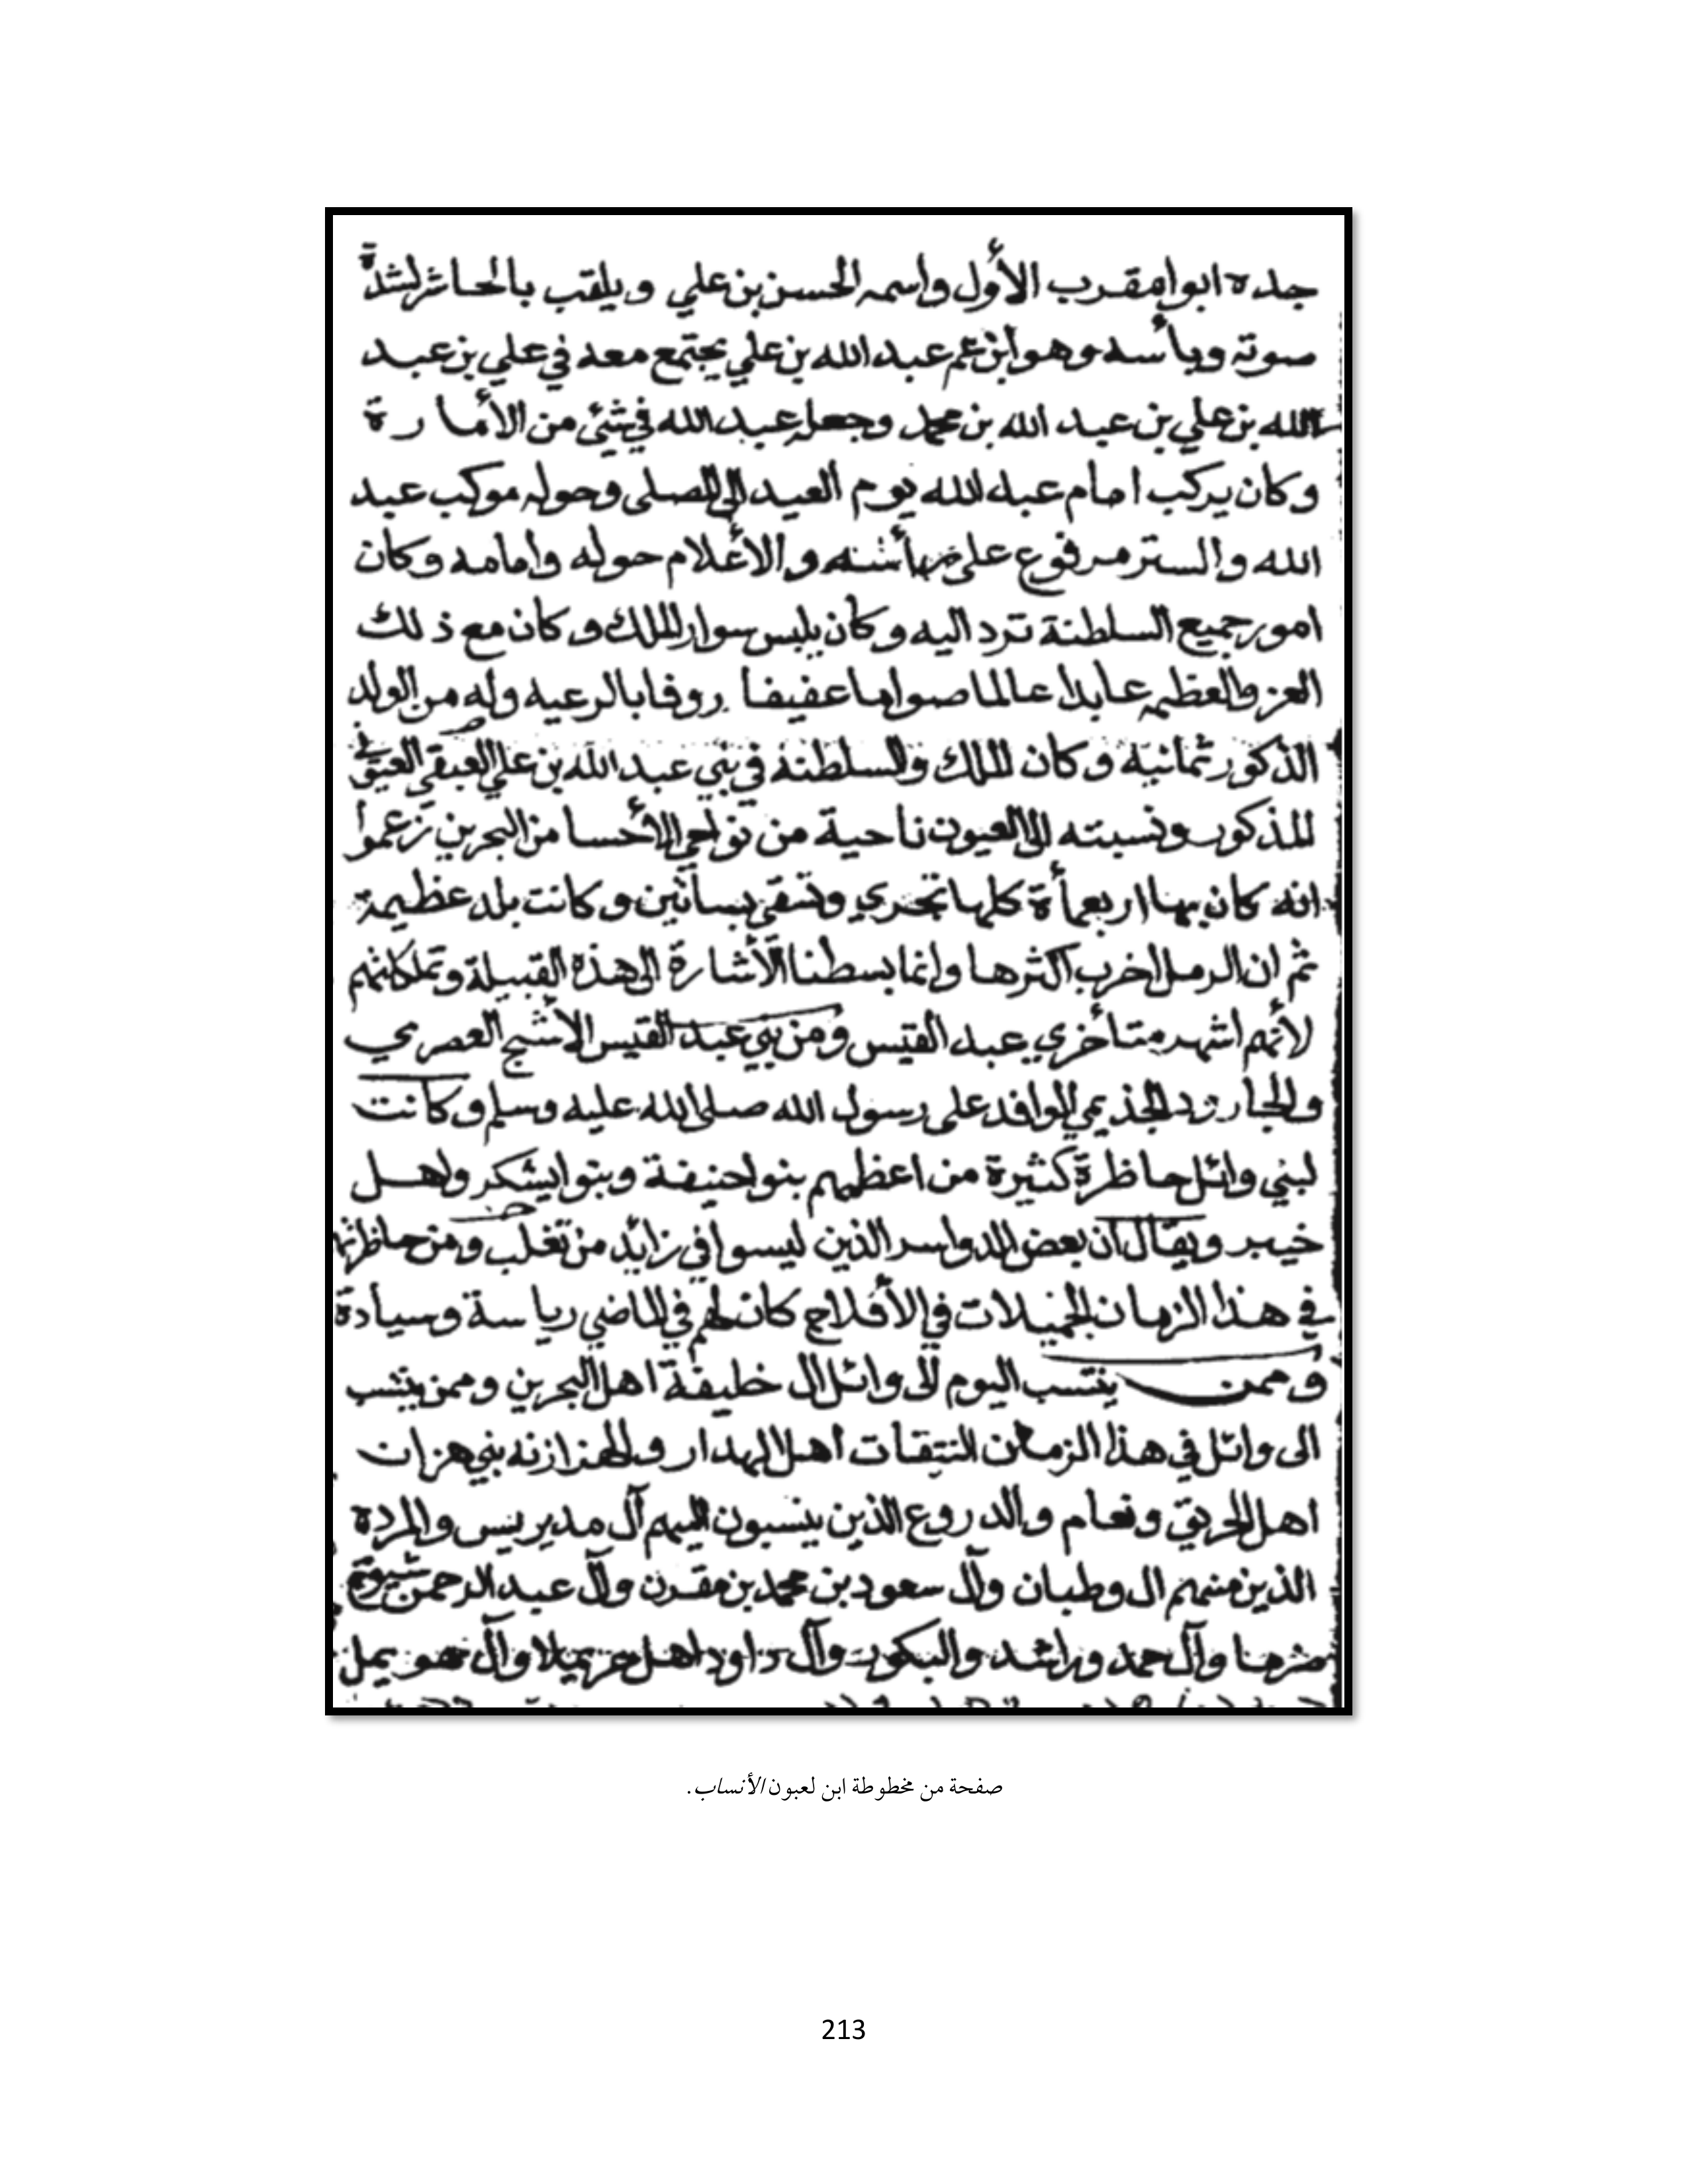 جده ابوا مقرب الأول واسمه الحسن بن علي ويلقب بالحاشر لشدة
صوته وبأسه وهو ابن عم عبد الله بن علي يجتمع معه في علي بن عبد
الله بن علي بن عبد الله بن محمد وجعله عبد الله في شئ من الأمارة
وكان يركب امام عبد الله يوم العيد الى المصلى وحوله موكب عبد
الله والستر مرفوع على رأسه والأعلام حوله وامامه وكان
امور جميع السلطنة ترد اليه وكان يلبس سوار الملك وكان مع ذلك
العز والعظمه عابدا عالما صواما عفيفا روفا بالرعيه وله من الولد
الذكور ثمانية وكان الملك والسلطنة في بني عبد الله بن علي
المذكور ونسبته الى العيون ناحية من نواحي الأحسا من البحرين زعموا
انه كان بها اربعمأة كلها تجري وتسقى بساتين وكانت بلد عظيمة
ثم ان الرمل اخرب اكثرها وانما بسطنا الأشارة الى هذه القبيلة وتملكاتهم
لأنهم اشهر متأخري عبد القيس ومن بني عبد القيس الأشج العصري
والجارود الجذيمي الوافد على رسول الله صلى الله عليه وسلم وكانت
لبني وائل حاظرة كثيرة من اعظمهم بنوا حنيفة وبنوا يشكر واهل
خيبر ويقال ان بعض الدواسر الذين ليسوا في زايد من تغلب ومن حاظرتهم
في هذا الزمان الجميلات في الأفلاج كان لهم في الماضي رياسة وسيادة
وممن ينتسب اليوم الى وائل ال خليفة اهل البحرين وممن ينتسب
الى وائل في هذا الزمان النتيقات اهل الهدار والهزازنه بني هزان
اهل الحريق ونعام والدروع الذين ينسبون اليهم آل مديريس والمرده
الذين منهم ال وطبان وآل سعود بن محمد بن مقرن وآل عبد الرحمن شيوخ
ضرما وآل حمد وراشد والبكور وآل داود اهل حريملا وآل
صفحة من مخطوطة ابن لعبون الأنساب.
213